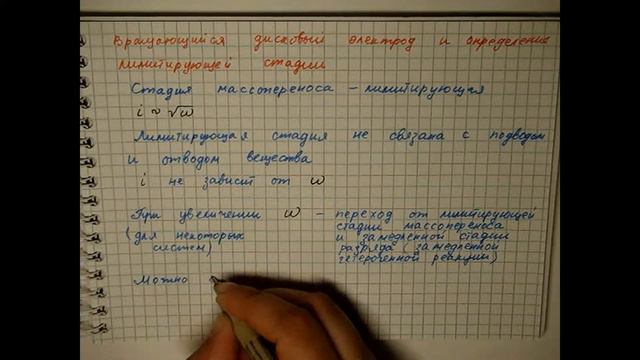 Вращающийся дисковый электрод и определение
лимитирующей стадии
Стадия массопереноса – лимитирующая
i ~ √ω
Лимитирующая стадия не связана с подводом
и отводом вещества
i не зависит от ω
При увеличении ω – переход от лимитирующей
(для некоторых стадии массопереноса
систем) и замедленной стадии
разряда (замедленной
гетерогенной реакции)
Можно